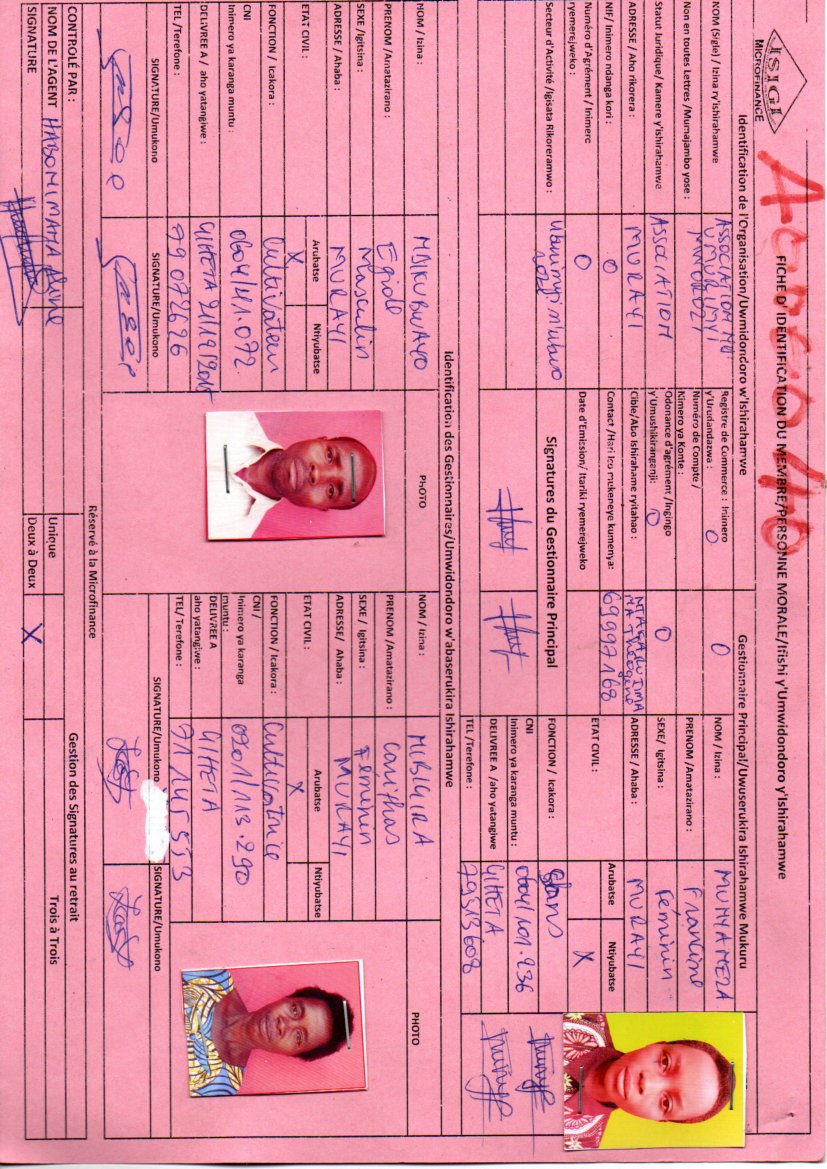 ISIGI
MICROFINANCE
FICHE D'IDENTIFICATION DU MEMBRE/PERSONNE MORALE/Ifishi y'Umwidondoro y'Ishirahamwe
Identification de l'Organisation/Uwmidondoro w'Ishirahamwe
Gestionnaire Principal/Uwuserukira Ishirahamwe Mukuru
NOM (Sigle) / Izina ry'ishirahamwe
ASSOCIATION
UMURIMYI
Non en toutes Lettres /Mumajambo yose :
Statut Juridique/ Kamere y'Ishirahamwe
ASSOCIATION
ADRESSE / Aho rikorera :
MURAYI
NIF/ Inimero ndanga kori :
0
Numéro d'Agrément / Inimero
ryemerejweko :
0
Secteur d'Activité /Igisata Rikoreramwo :
Registre de Commerce : Inimero
y'Urudandazwa :
0
0
Numéro de Compte /
Kimero ya Konte :
Odonance d'agrément /Ingingo
y'Umushikiranganji:
0
0
Cible/Abo Ishirahame ryitahao :
Contact /Hari ico mukeneye kumenya:
69997168
Date d'Emission/ Itariki ryemerejweko
Signatures du Gestionnaire Principal
NOM / Izina :
MUNYANEZA
PRENOM /Amatazirano :
Francine
SEXE/ Igitsina :
Féminin
ADRESSE /Ahaba :
MURAYI
ETAT CIVIL :
Arubatse
Ntiyubatse
X
FONCTION / Icakora :
CNI
Inimero ya karanga muntu :
0604/101.236
DELIVREE A /aho yatangiwe
GIHETA
TEL /Terefone :
79513608
Identification des Gestionnaires/Umwidondoro w'abaserukira Ishirahamwe
NOM / Izina :
NDIKUBWAYO
PRENOM /Amatazirano :
Egide
SEXE /Igitsina :
Masculin
ADRESSE / Ahaba :
MURAYI
ETAT CIVIL :
Arubatse
Ntiyubatse
X
FONCTION / Icakora :
Cultivateur
CNI
Inimero ya karanga muntu :
0604/141.072
DELIVREE A / aho yatangiwe :
GIHETA
TEL /Terefone :
79072626
SIGNATURE/Umukono
SIGNATURE/Umukono
PHOTO
NOM / Izina :
NIBIGIRA
PRENOM /Amatazirano :
SEXE / Igitsina :
Féminin
ADRESSE/ Ahaba :
MURAYI
ETAT CIVIL :
Arubatse
Ntiyubatse
X
FONCTION / Icakora :
Cultivatrice
CNI /
Inimero ya karanga
muntu :
0201/113.290
DELIVREE A
aho yatangiwe :
GIHETA
TEL/ Terefone :
71 145553
SIGNATURE/Umukono
SIGNATURE/Umukono
PHOTO
Réservé à la Microfinance
CONTROLÉ PAR :
NOM DE L'AGENT
HABONIMANA
SIGNATURE
Gestion des Signatures au retrait
Unique
Deux à Deux
X
Trois à Trois